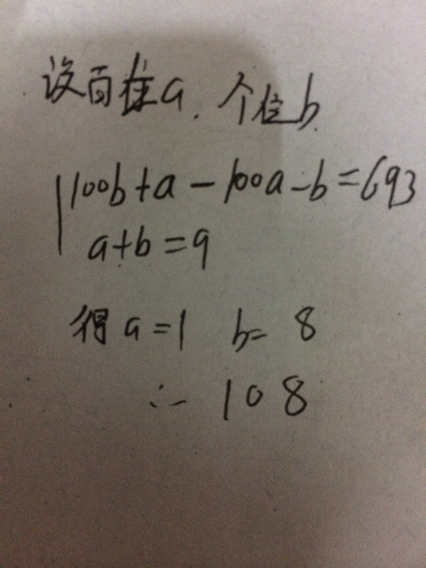 设百位a.个位b.
100b+a-100a-b=693
a+b=9
得a=1 b=8
∴108